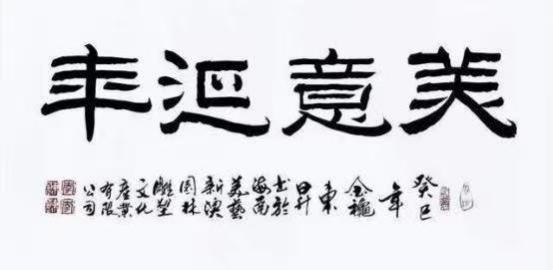 美意延年
癸巳
年
金穐
東
昇
书於
海南
美藝
新澳
園林
雕塑
文化
產業
有限
公司